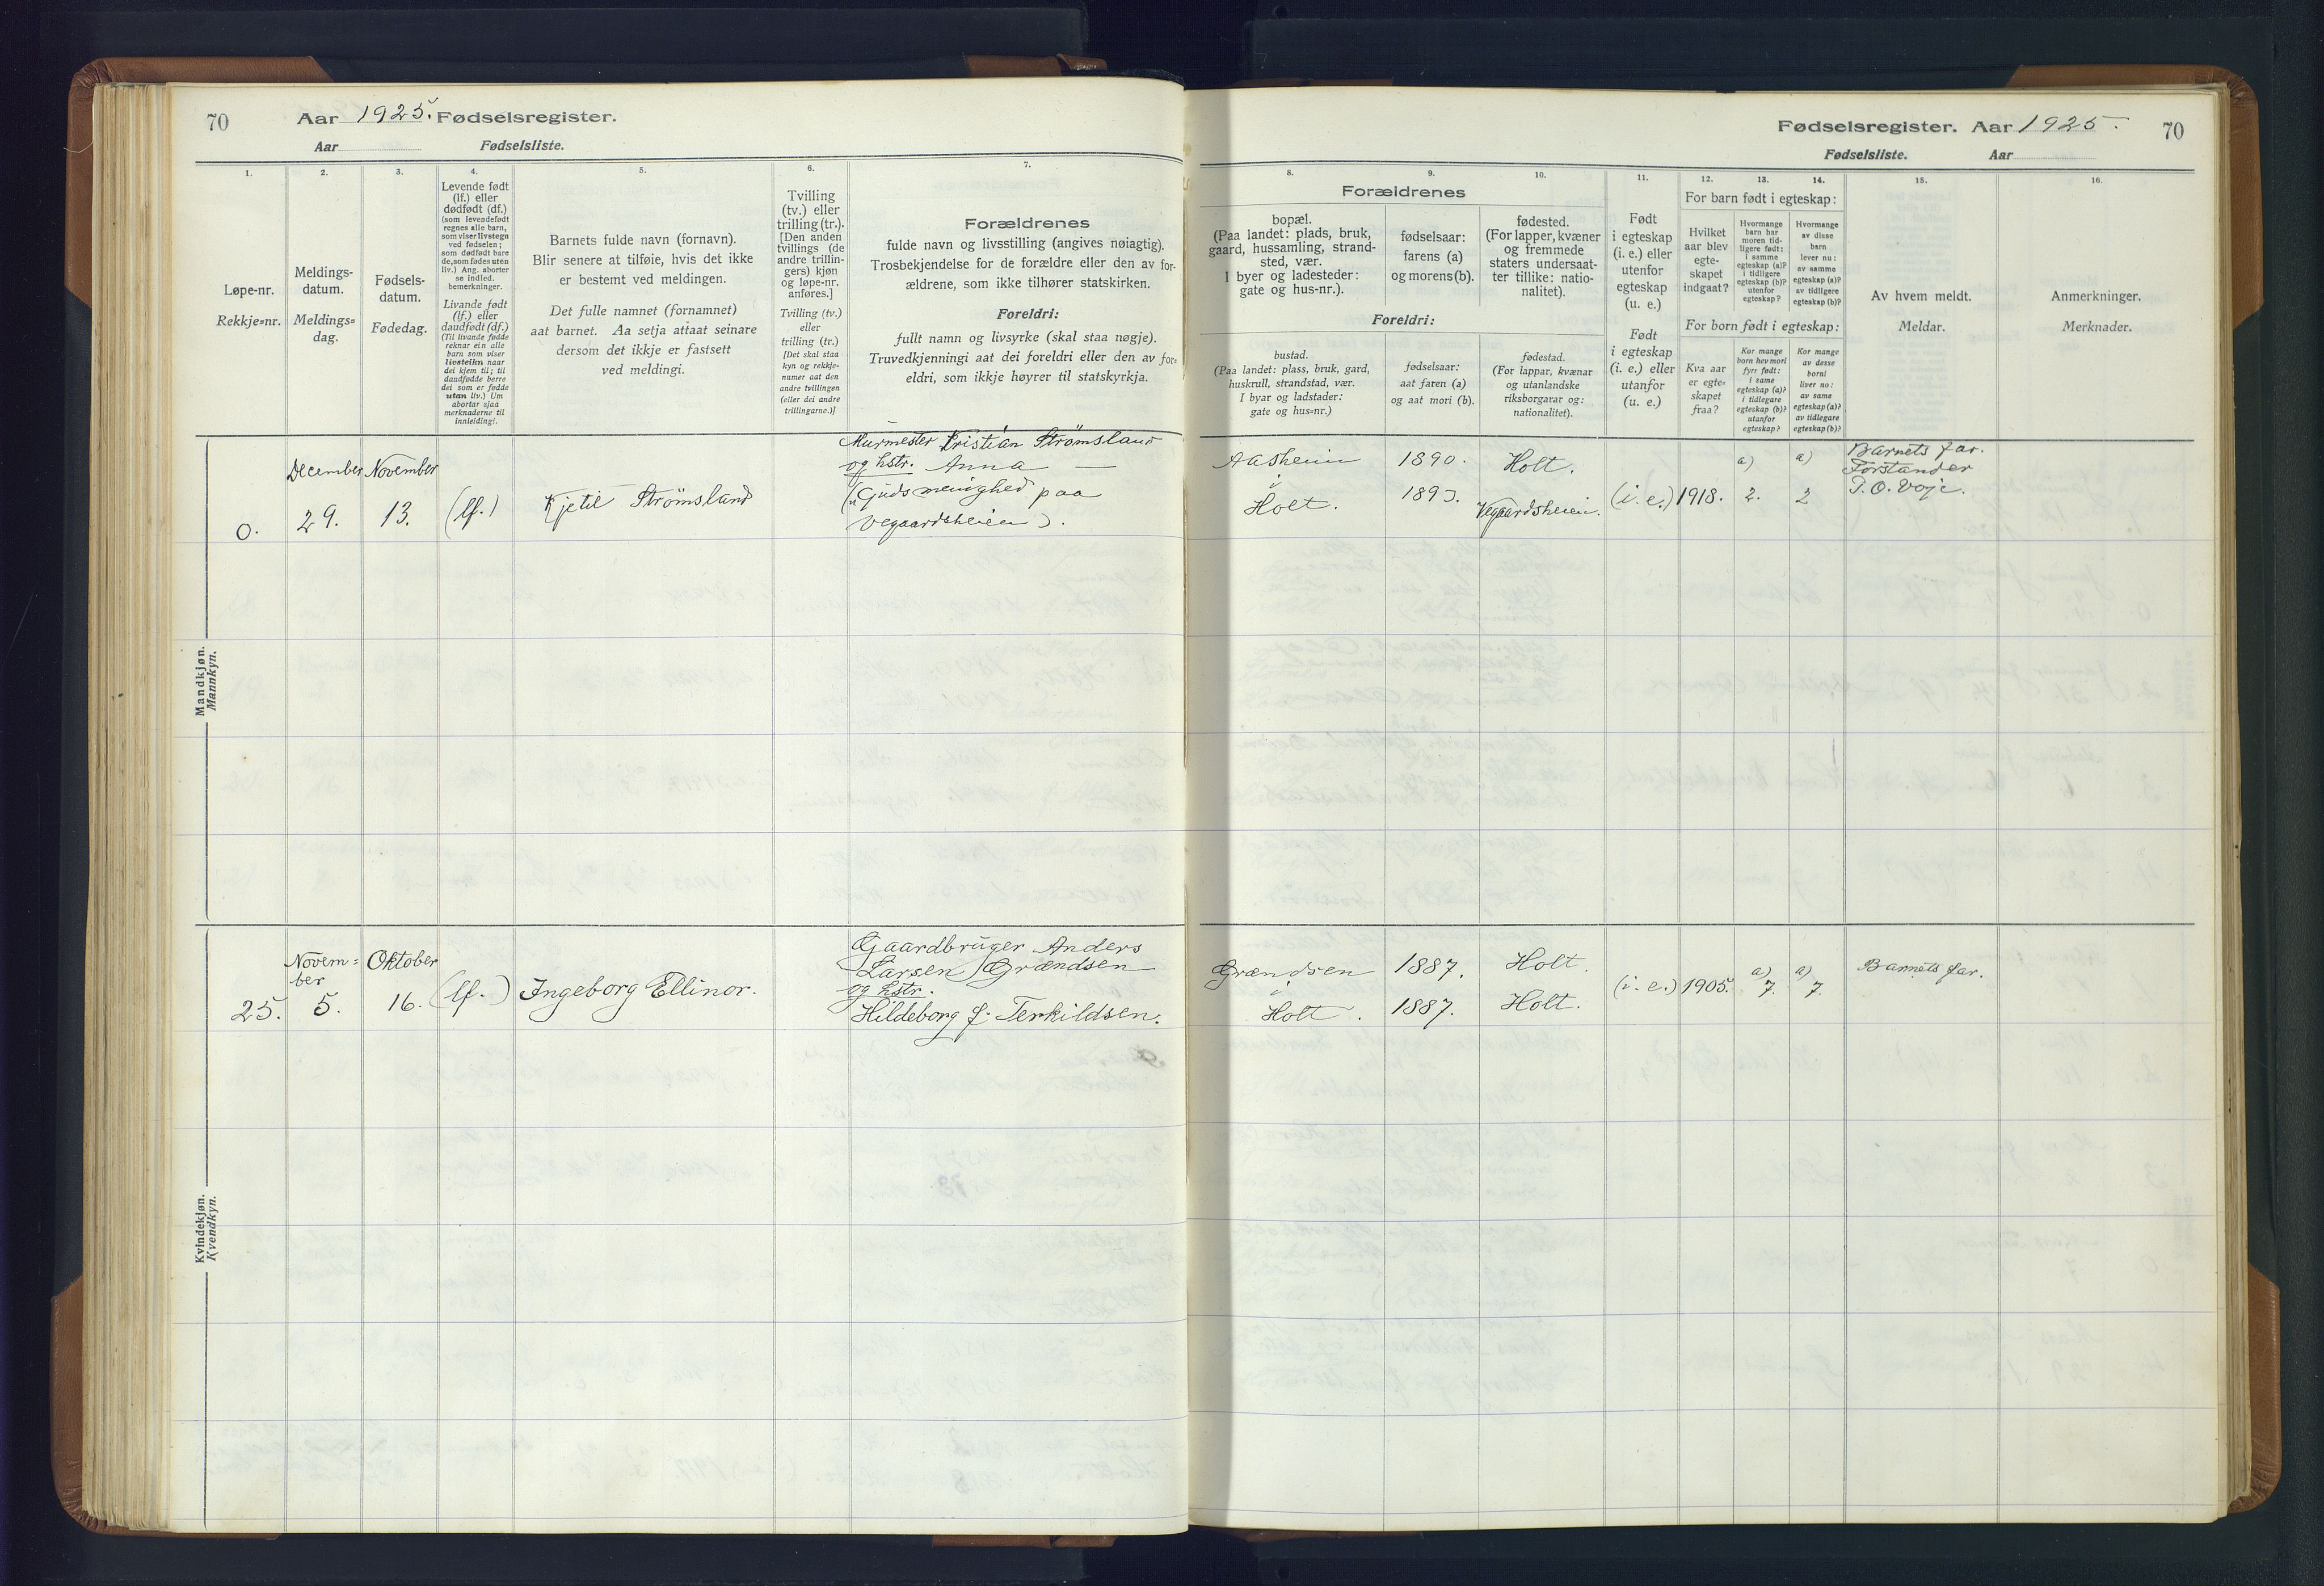 70
Aar 1925. Fødselsregister.
Aar Fødselsliste.
1.
2.
3.
4.
5.
6.
7.
Løpe-nr.
Rekkje=nr.
Meldings-
datum.
Meldings=
dag.
Fødsels-
datum.
Fødedag.
Levende født
(lf.) eller
dødfødt (df.)
(som levendefødt
regnes alle barn,
som viser livstegn
ved fødselen;
som dødfødt bare
de, som fødes uten
liv.) Ang. aborter
se indled.
bemerkninger.
Livande født
(lf.) eller
daudfødt (df.)
(Til livande fødde
reknar ein alle
born som viser
livsteikn naar
dei kjem til; til
daudfødde berre
dei som er fødde
utan liv.) Um
abortar sjaa
merknaderne til
innleidingi.
Barnets fulde navn (fornavn).
Blir senere at tilføie, hvis det ikke
er bestemt ved meldingen.
Det fulle namnet (fornamnet)
aat barnet. Aa setja attaat seinare
dersom det ikkje er fastsett
ved meldingi.
Tvilling
(tv.) eller
trilling (tr.).
[Den anden
tvillings (de
andre trillin-
gers) kjøn
og løpe-nr.
anføres.]
Tvilling (tv.)
eller
trilling (tr.)
[Det skal staa
kyn og rekkje-
numer aat den
andre tvillingen
(eller dei andre
trillingarne.)]
Forældrenes
fulde navn og livsstilling (angives nøiagtig).
Trosbekjendelse for de forældre eller den av for-
ældrene, som ikke tilhører statskirken.
Foreldri:
fullt namn og livsyrke (skal staa nøgje).
Truvedkjenningi aat dei foreldri eller den av for=
eldri, som ikkje høyrer til statskyrkja.
Mandkjøn.
Mannkyn.
December November
0. 29. 13. (lf.) Kjetil Strømsland
Murmester Kristian Strømsland
og hstr. Anna —
("Guds menighed paa
Vegaardsheien).
Kvindekjøn.
Kvendkyn.
Novem=
ber
Oktober
25. 5. 16. (lf.) Ingeborg Ellinor.
Gaardbruger Anders
Larsen Grændsen
og hstr.
Hildeborg f. Terkildsen.
Fødselsregister. Aar 1925. 70
Fødselsliste. Aar
8.
9.
10.
11.
12.
13.
14.
15.
16.
Forældrenes
bopæl.
(Paa landet: plads, bruk,
gaard, hussamling, strand-
sted, vær.
I byer og ladesteder:
gate og hus-nr.).
fødselsaar:
farens (a)
og morens (b).
fødested.
(For lapper, kvæner
og fremmede
staters undersaat-
ter tillike: natio-
nalitet).
Foreldri:
bustad.
(Paa landet: plass, bruk, gard,
huskrull, strandstad, vær.
I byar og ladstader:
gate og hus=nr.)
fødselsaar:
aat faren (a)
og aat mori (b).
fødestad.
(For lappar, kvænar
og utanlandske
riksborgarar og:
nationalitet).
Født
i egteskap
(i. e.) eller
utenfor
egteskap
(u. e.)
Født
i egteskap
(i. e.) eller
utanfor
(u. e.)
For barn født i egteskap:
Hvilket
aar blev
egte-
skapet
indgaat?
Hvormange
barn har
moren tid-
ligere født:
i samme
egteskap (a)?
i tidligere
egteskap (b)?
utenfor
egteskap?
Hvormange
av disse
barn
lever nu:
av samme
egteskap (a)?
av tidligere
egteskap (b)?
For born født i egteskap:
Kva aar
er egte=
skapet
fraa?
Kor mange
born hev mori
fyrr født:
i same
egteskap (a)?
i tidlegare
egteskap (b)?
utanfor
egteskap?
Kor mange
av desse
borni
liver no:
av same
egteskap (a)?
av tidlegare
egteskap (b)?
Av hvem meldt.
Meldar.
Anmerkninger.
Merknader.
Aasheim
i
Holt.
1890.
1893.
Holt.
Vegaardsheien.
(i. e.) 1918.
a)
2.
a)
2
Barnets far.
Forstander
T. O. Voje.
Grændsen
i
Holt.
1887.
1887.
Holt.
Holt.
(i. e.) 1905.
a)
7.
a)
7.
Barnets far.